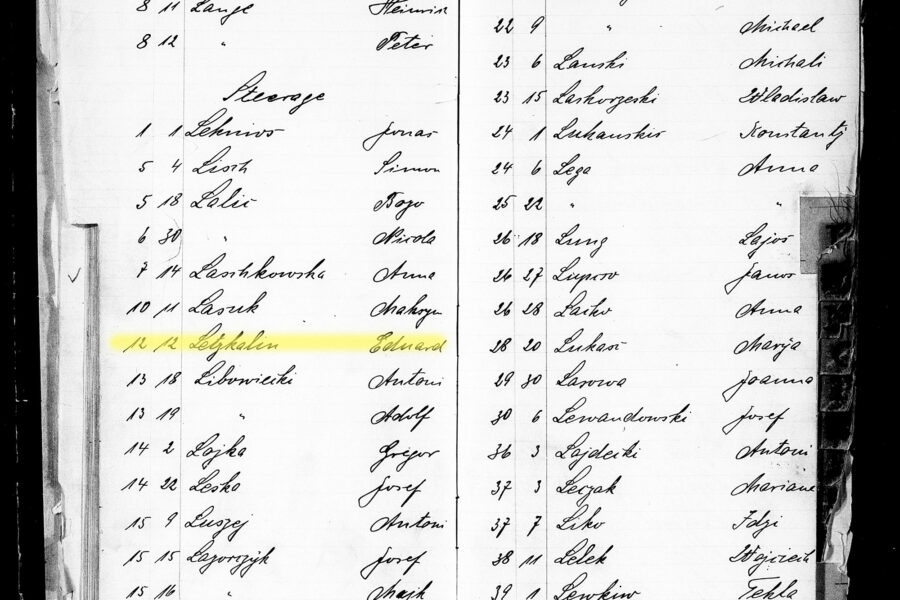 8 11 Lange Heinrich
8 12 " Peter
Steerage
1 1 Lehnios Jonas
5 4 Lisch Simon
5 18 Lalic Bozo
6 30 " Nicola
7 14 Laschkowska Anna
10 11 Lasuk Maksym
12 12 Letzkalin Eduard
13 18 Libowiecki Antoni
13 19 " Adolf
14 2 Lajka Gregor
14 22 Lesko Josef
15 9 Luszej Antoni
15 15 Lazorczyk Josef
15 16 "
22 9 " Michael
23 6 Lanski Michali
23 15 Laskorzeski Wladislaw
24 1 Lukanskis Konstantij
24 6 Lega Anna
25 22 " "
26 18 Lung Lajos
26 27 Janos
26 28 Laiko Anna
28 20 Lukasi Marija
29 30 Larowa Joanna
30 6 Lewandowski Josef
36 3 Lajdecki Antoni
37 3 Leczak Mariane
37 7 Liko Idzi
38 11 Lelek Wojciech
39 1 Lewkiw Tekla